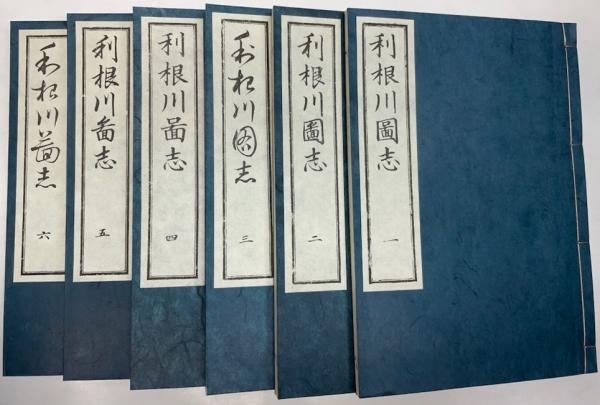 利根川圖志
一
利根川圖志
二
利根川図志
三
利根川啚志
四
利根川啚志
五
利根川圖志
六